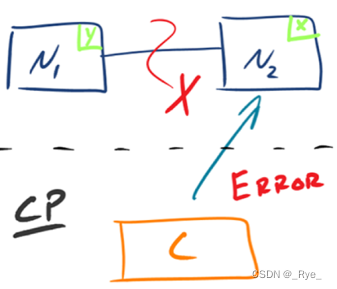 N1
y
N2
x
X
ERROR
CP
C
CSDN @_Rye_